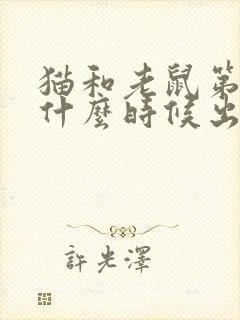 猫和老鼠第
什麼時候出
許光澤